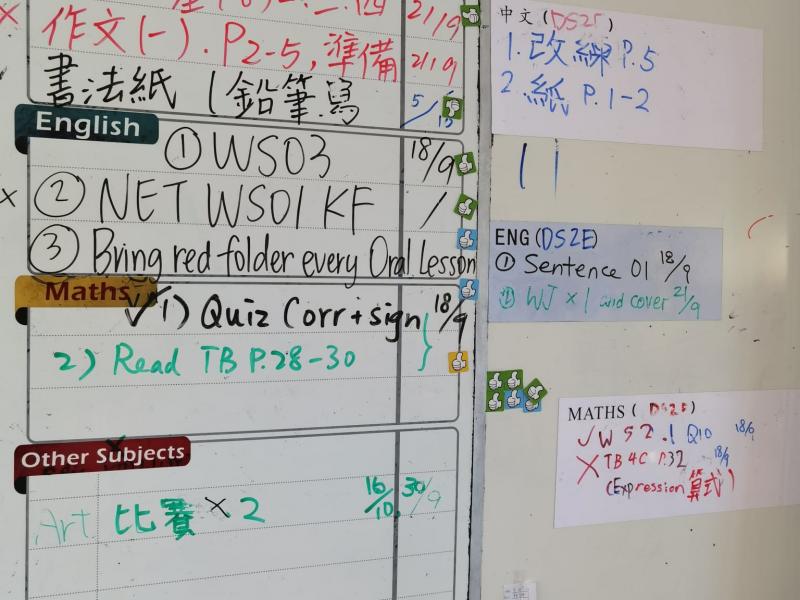 作文(一).P2-5,準備 21/9
書法紙 (鉛筆寫 5/
English
① WS03 18/9
② NET WS01 KF /
③ Bring red folder every Oral Lesson
Maths
✓1) Quiz Corr + sign 18/9
2) Read TB P.28-30
Other Subjects
Art 比賽 × 2 16/10 30/9
中文 (DS2E)
1. 改練 P.5
2. 紙 P.1-2
ENG (DS2E)
① Sentence 01 18/9
② WJ × 1 and cover 21/9
MATHS ( DS2E)
✓WS 2.1 Q10 18/9
×TB 4C P.32 18/9
(Expression 算式)